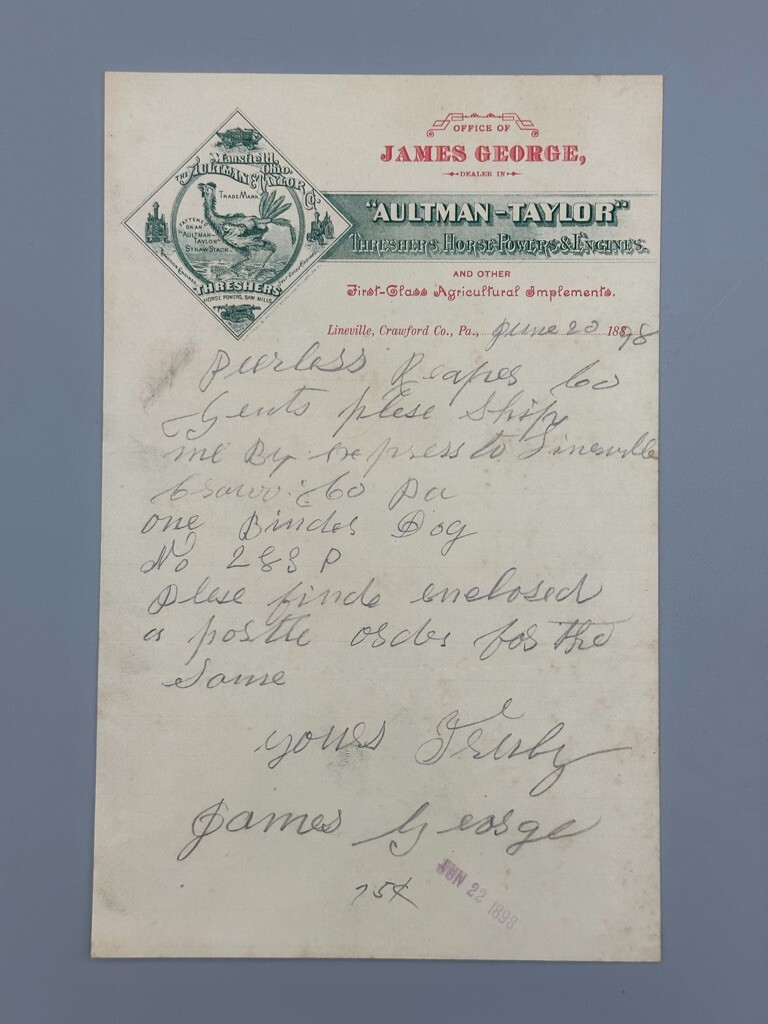 OFFICE OF
JAMES GEORGE,
DEALER IN
"AULTMAN-TAYLOR"
THRESHERS, HORSE-POWERS & ENGINES.
AND OTHER
First-Class Agricultural Implements.
Mansfield, Ohio.
THE AULTMAN & TAYLOR CO.
TRADE MARK
FATTENED
ON AN
"AULTMAN-
TAYLOR"
STRAW STACK.
THRESHERS
HORSE POWERS, SAW MILLS,
Lineville, Crawford Co., Pa., June 20 1898
Peerless Reaper Co
Gents plese Ship
me By express to Linesville
Craw. Co Pa
one Binder Dog
No 283 P
Plese finde enclosed
a postle order for the
Same
yours Truly
James George
75¢
JUN 22 1898